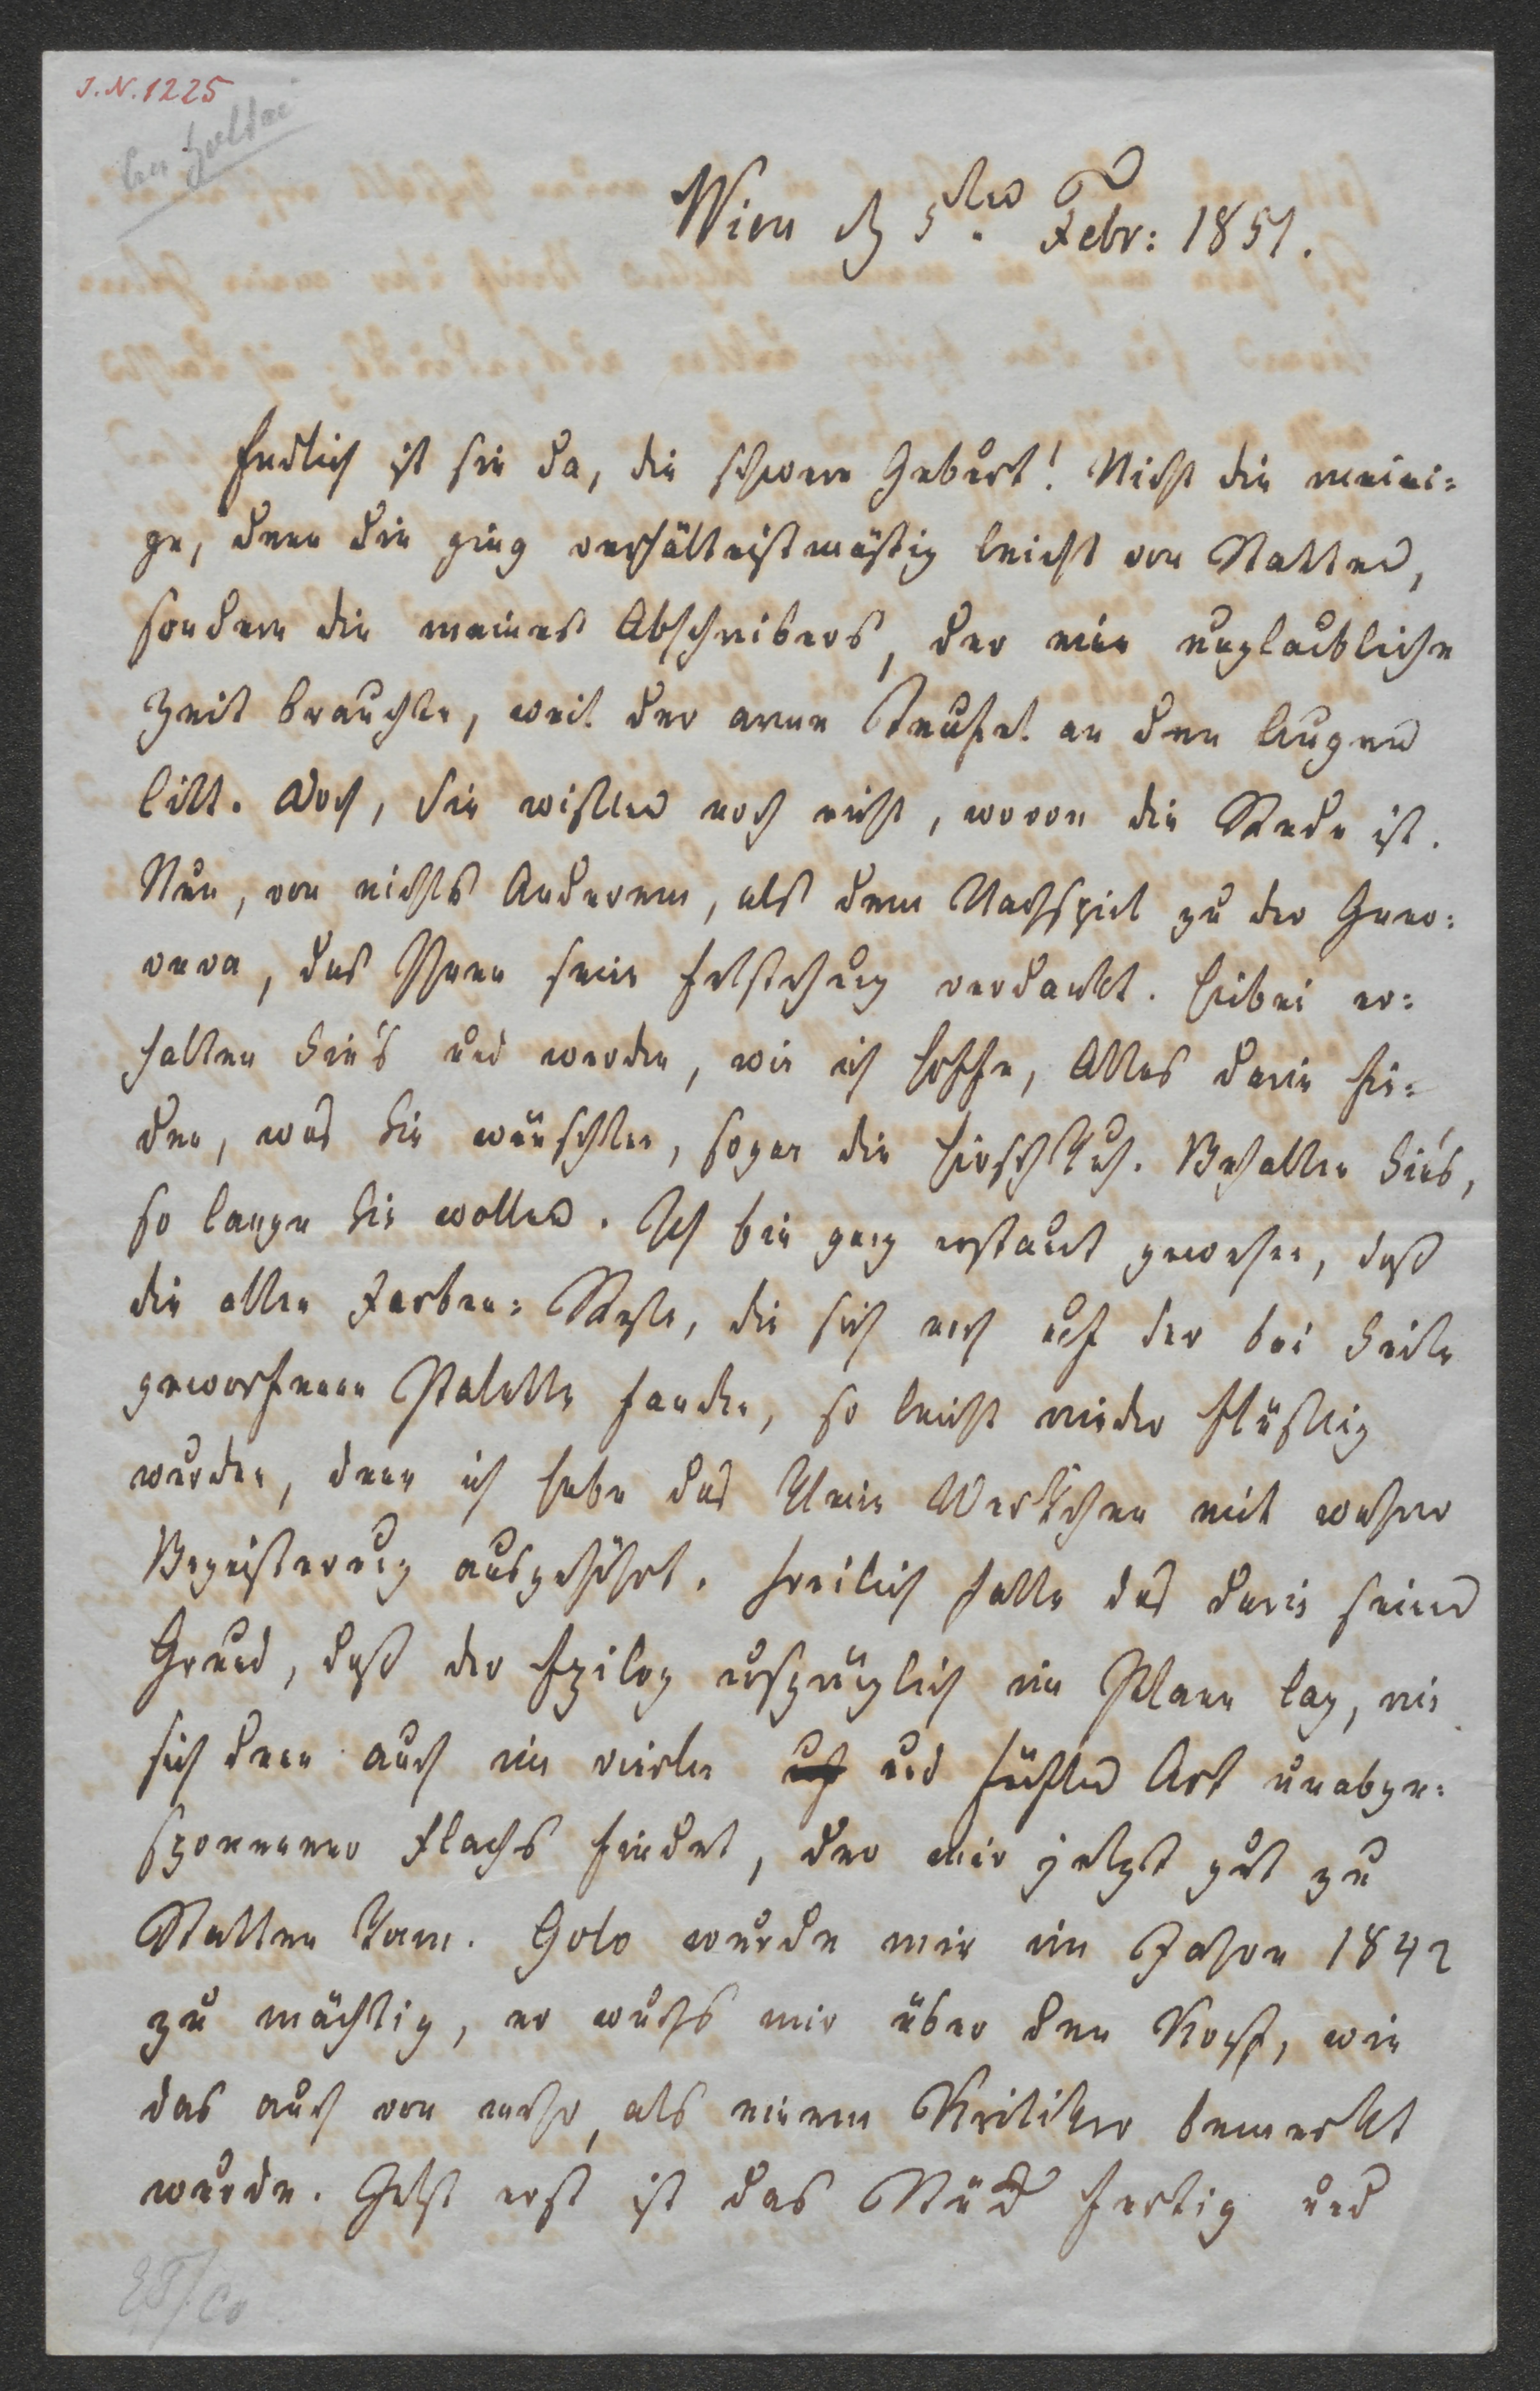 J. N. 1225
an Holtei
Wien d 5ten Febr: 1851.
Endlich ist sie da, die schwere Geburt! Nicht die meini=
ge, denn die ging verhältnißmäßig leicht von Statten,
sondern die meines Abschreibers, der eine unglaubliche
Zeit brauchte, weil der arme Teufel an den Augen
litt. Doch, Sie wissen noch nicht, wovon die Rede ist.
Nun, von nichts Anderem, als dem Nachspiel zu der Geno=
veva, das Ihnen seine Entstehung verdankt. Hiebei er=
halten Sie's und werden, wie ich hoffe, Alles darin fin=
den, was Sie wünschten, sogar die Hirschkuh. Behalten Sie's,
so lange Sie wollen. Ich bin ganz erstaunt gewesen, daß
die alten Farben=Reste, die sich noch auf der bei Seite
geworfenen Palette fanden, so leicht wieder flüssig
wurden, denn ich habe das kleine Werkchen mit wahrer
Begeisterung ausgeführt. Freilich hatte das darin seinen
Grund, daß der Epilog ursprünglich im Plane lag, wie
sich denn auch im vierten und fünften Act unabge=
sponnener Flachs findet, der mir jetzt gut zu
Statten kam. Golo wurde mir im Jahre 1842
zu mächtig, er wuchs mir über den Kopf, wie
das auch von mehr, als einem Kritiker bemerkt
wurde. Jetzt erst ist das Stück fertig und